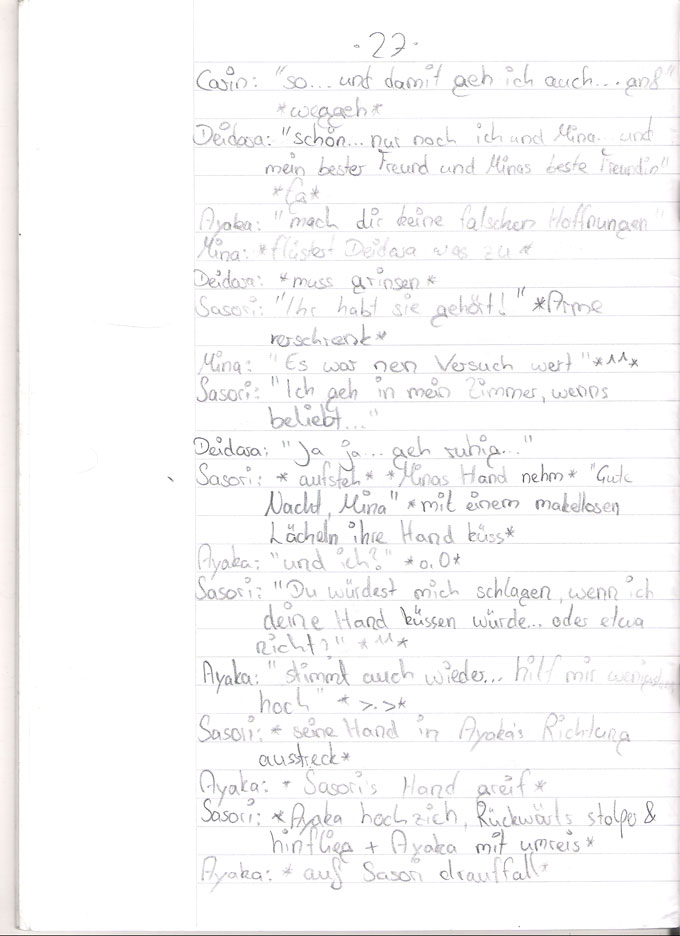 ·27·
Carin: "so... und damit geh ich auch... auf"
*weggeh*
Deidara: "schön... nur noch ich und Mina... und
mein bester Freund und Minas beste Freundin"
Ayaka: "mach dir keine falschen Hoffnungen"
Mina: *flüstert Deidara was zu*
Deidara: *muss grinsen*
Sasori: "Ihr habt sie gehört!" *Arme
verschrenk*
Mina: "Es war nen Versuch wert" *^^*
Sasori: "Ich geh in mein Zimmer, wenns
beliebt..."
Deidara: "Ja ja... geh ruhig..."
Sasori: *aufsteh* *Minas Hand nehm* "Gute
Nacht, Mina" *mit einem makellosen
Lächeln ihre Hand küss*
Ayaka: "und ich?" *o.O*
Sasori: "Du würdest mich schlagen, wenn ich
deine Hand küssen würde... oder etwa
nicht?" *^^*
Ayaka: "stimmt auch wieder... hilf mir wenigstens
hoch" *>.>*
Sasori: *seine Hand in Ayaka's Richtung
ausstreck*
Ayaka: *Sasori's Hand greif*
Sasori: *Ayaka hochzieh, Rückwärts stolper &
hinflieg + Ayaka mit umreis*
Ayaka: *auf Sasori drauffall*